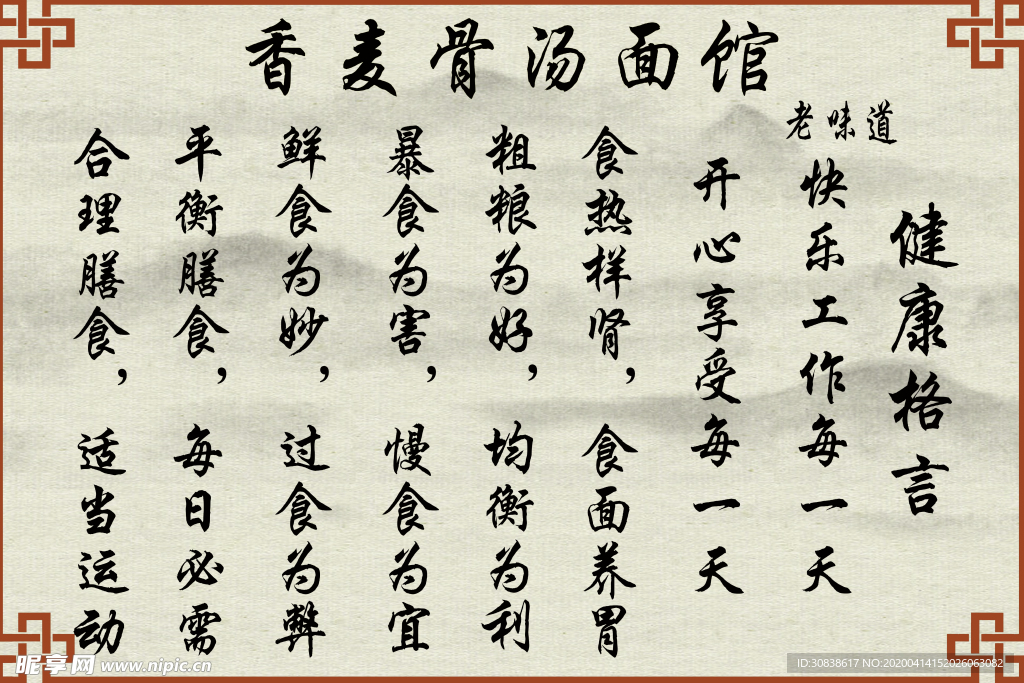 香麦骨汤面馆
老味道
健康格言
快乐工作每一天
开心享受每一天
食热样肾，食面养胃
粗粮为好，均衡为利
暴食为害，慢食为宜
鲜食为妙，过食为弊
平衡膳食，每日必需
合理膳食，适当运动
昵享网 www.nipic.cn
ID:30838617 NO:20200414152026063082